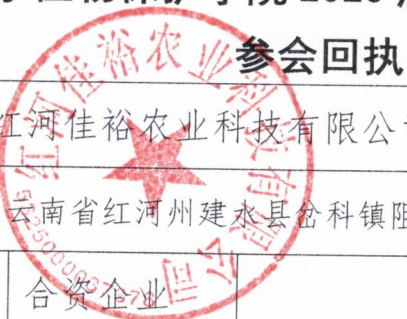 参会回执
红河佳裕农业科技有限公
云南省红河州建水县岔科镇阻
合资企业
红河佳裕农业科技有限公司